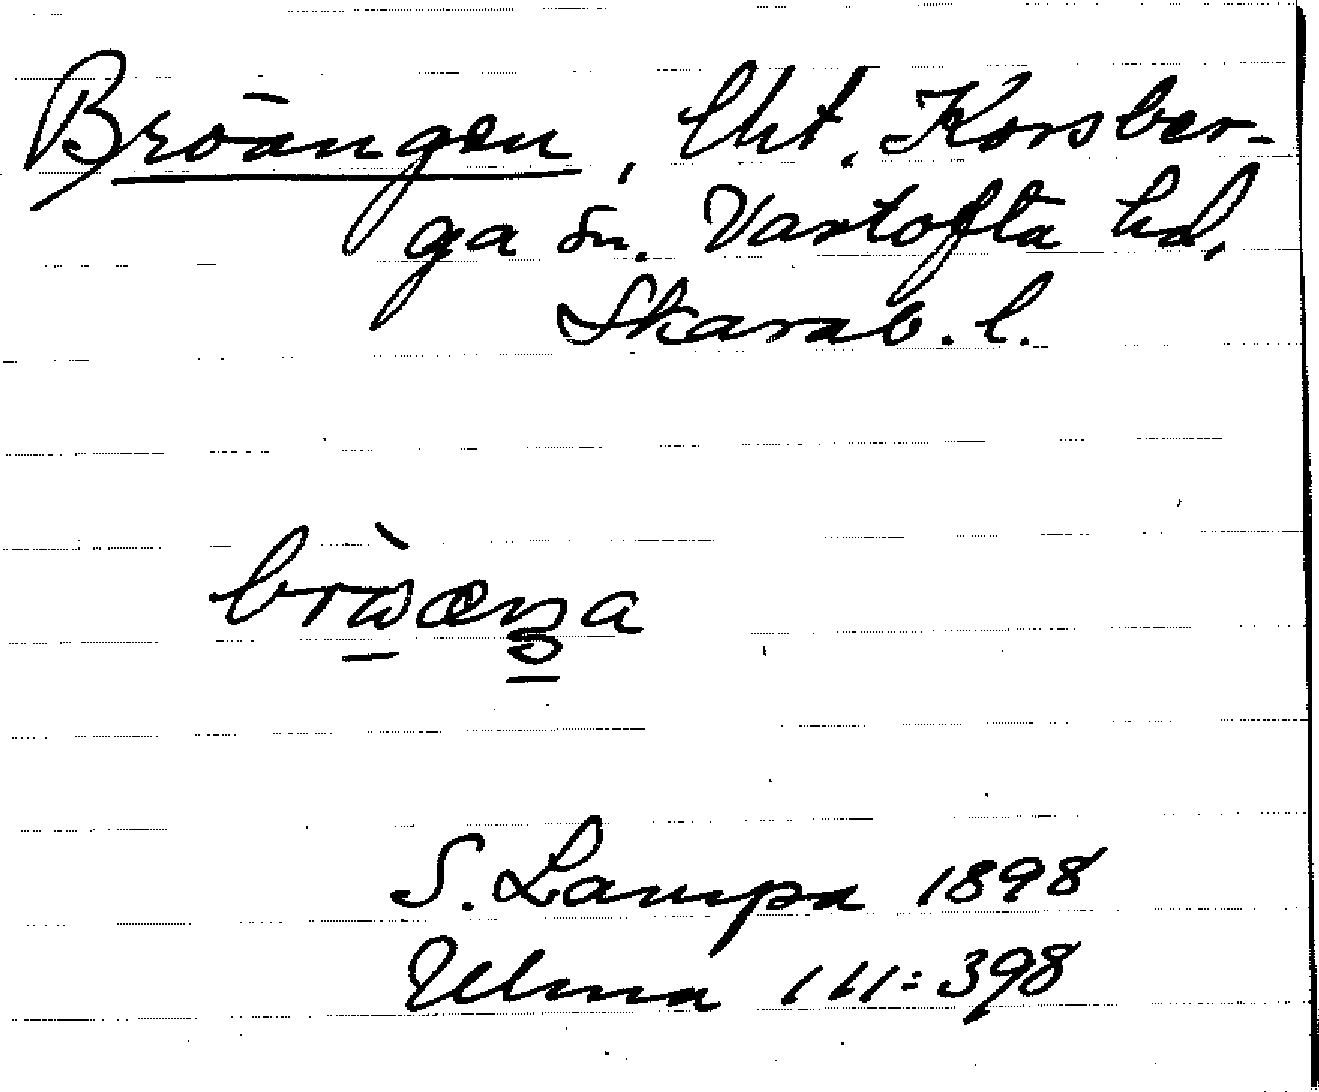 Broängen, lht. Korsber-
ga sn. Vartofta hd.
Skarab. l.
S. Lampa 1898
Ulma 111:398